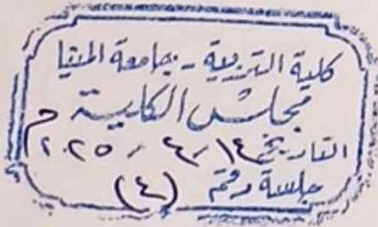 كلية التربية - جامعة المنيا
مجلس الكلية
التاريخ ١٤ / ٤ / ٢٠٢٥ م
جلسة رقم (٤)